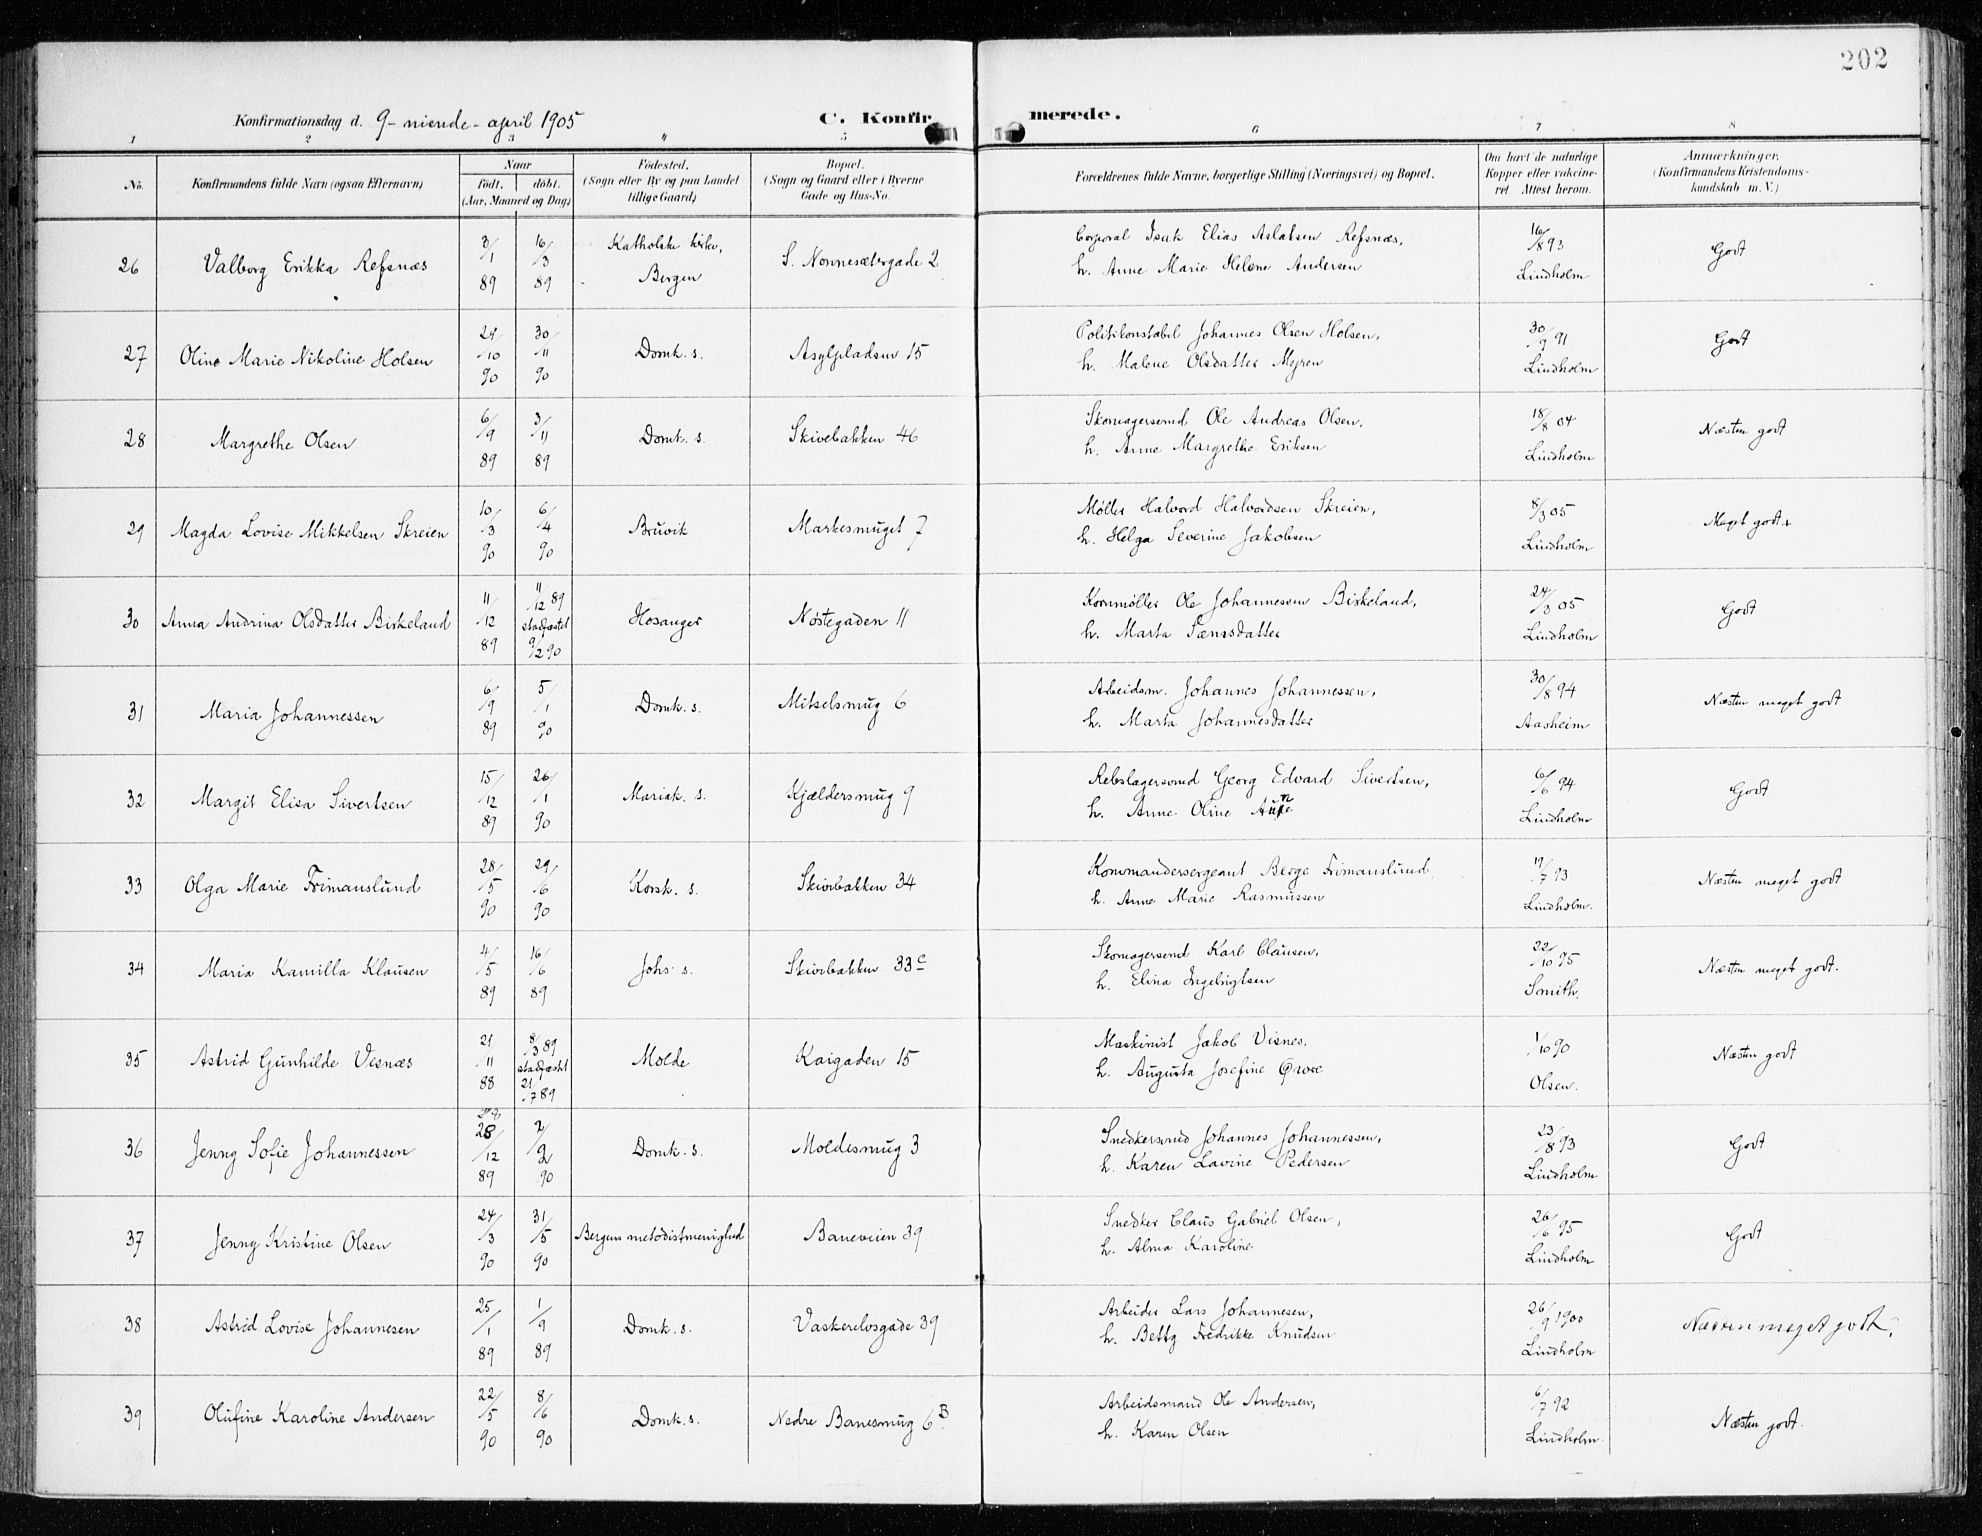 202
Konfirmationsdag d. 9 - niende - april 1905 C. Konfirmerede.
1 2 3 4 5 6 7 8
No. Konfirmandens fulde Navn (ogsaa Efternavn) Naar født. døbt. (Aar, Maaned og Dag) Fødested. (Sogn eller By og paa Landet tillige Gaard) Bopæl. (Sogn og Gaard eller i Byerne Gade og Hus-No. Forældrenes fulde Navne, borgerlige Stilling (Næringsvei) og Bopæl. Om havt de naturlige Kopper eller vakcineret. Attest herom. Anmærkninger. (Konfirmandens Kristendomskundskab m. V.)
26 Valborg Erikka Refsnæs 3/1 89 16/3 89 Katholske kirke, Bergen S. Nonnesætergade 2 Corporal Isak Elias Aslaksen Refsnæs, h. Anne Marie Helene Andersen 16/8 93 Lindholm Godt
27 Oline Marie Nikoline Holsen 29/10 90 30/11 90 Domk. s. Asylpladsen 15 Politikonstabel Johannes Olsen Holsen, h. Malene Olsdatter Myren 30/9 91 Lindholm Godt
28 Margrethe Olsen 6/9 89 3/11 89 Domk. s. Skivebakken 46 Skomagersvend Ole Andreas Olsen, h. Anne Margrethe Eriksen 18/8 04 Lindholm Næsten godt
29 Magda Lovise Mikkelsen Skreien 10/3 90 6/4 90 Bruvik Markesmuget 7 Møller Halvord Halvordsen Skreien, h. Helga Severine Jakobsen 8/3 05 Lindholm Meget godt
30 Anna Andrina Olsdatter Birkeland 11/12 89 11/12 89 stadfæstet 9/2 90 Hosanger Nøstegaden 11 Kornmøller Ole Johannessen Birkeland, h. Marta Sænesdatter 24/3 05 Lindholm Godt
31 Maria Johannessen 6/9 89 5/1 90 Domk. s. Mitselsmug 6 Arbeidsm. Johannes Johannessen, h. Marta Johannesdatter 30/8 94 Aasheim Næsten meget godt
32 Margit Elisa Sivertsen 15/12 89 26/1 90 Mariak. s. Kjældersmug 9 Rebslagersvend Georg Edvard Sivertsen, h. Anne Oline Aune 6/6 94 Lindholm Godt
33 Olga Marie Frimanslund 28/5 90 29/6 90 Korsk. s. Skivebakken 34 Kommandersergeant Berge Frimanslund h. Anne Marie Rasmussen 19/7 93 Lindholm. Næsten meget godt
34 Maria Kamilla Klausen 4/5 89 16/6 89 Johs. s. Skivebakken 33c Skomagersvend Karl Clausen, h. Elina Ingebrigtsen 22/10 95 Smith. Næsten meget godt.
35 Astrid Gunhilde Visnæs 21/11 88 8/3 89 stadfæstet 21/7 89 Molde Kaigaden 15 Maskinist Jakob Visnes, h. Augusta Josefine Qvore 1/10 90 Olsen. Næsten godt
36 Jenny Sofie Johannessen 28/12 89 2/2 90 Domk. s. Moldesmug 3 Snedkersvend Johannes Johannessen, h. Karen Lavine Pedersen 23/8 93 Lindholm Godt
37 Jenny Kristine Olsen 24/3 90 31/5 90 Bergens metodistmenighed Baneveien 39 Snedker Claus Gabriel Olsen, h. Alma Karoline 26/6 95 Lindholm Godt
38 Astrid Lovise Johannesen 25/1 89 1/9 89 Domk. s. Vaskerelvsgade 39 Arbeider Lars Johannesen, h. Betty Fredrikke Knudsen 26/9 1900 Lindholm Næsten meget godt.
39 Olufine Karoline Andersen 22/5 90 8/6 90 Domk. s. Nedre Banesmug 6B Arbeidsmand Ole Andersen, h. Karen Olsen 6/7 92 Lindholm. Næsten godt.